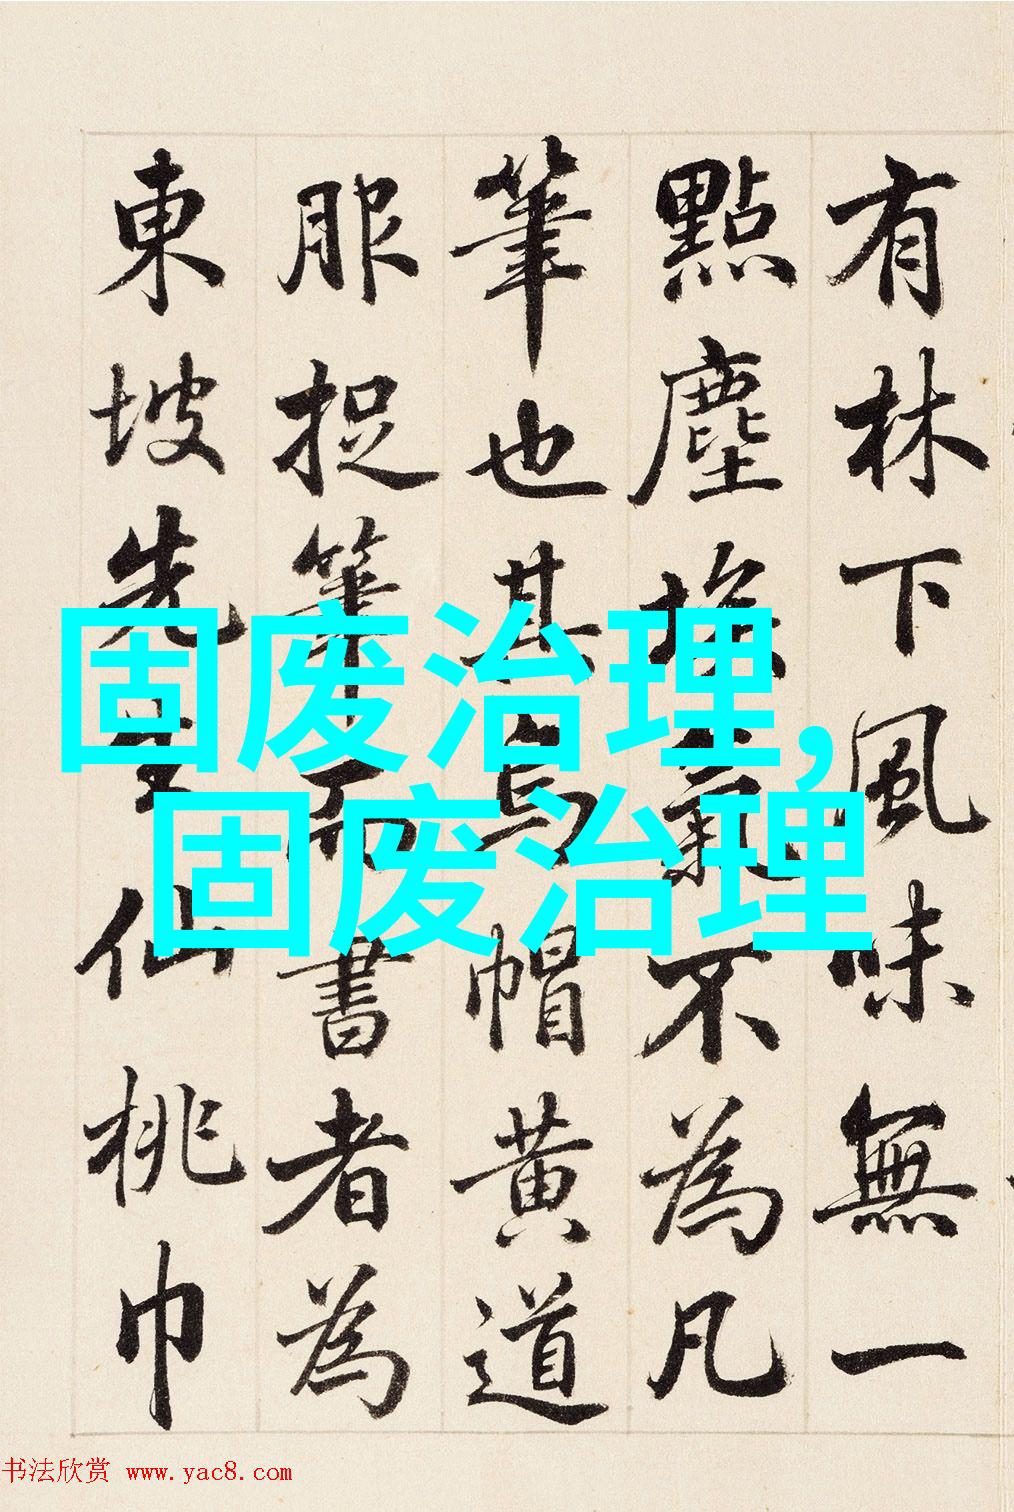 有林下風味無一
點塵埃氣不為凡
筆也其烏帽黃道
服捉筆而書者為
東坡先生仙桃巾
固废治理,
固废治理
书法欣赏 www.yac8.com